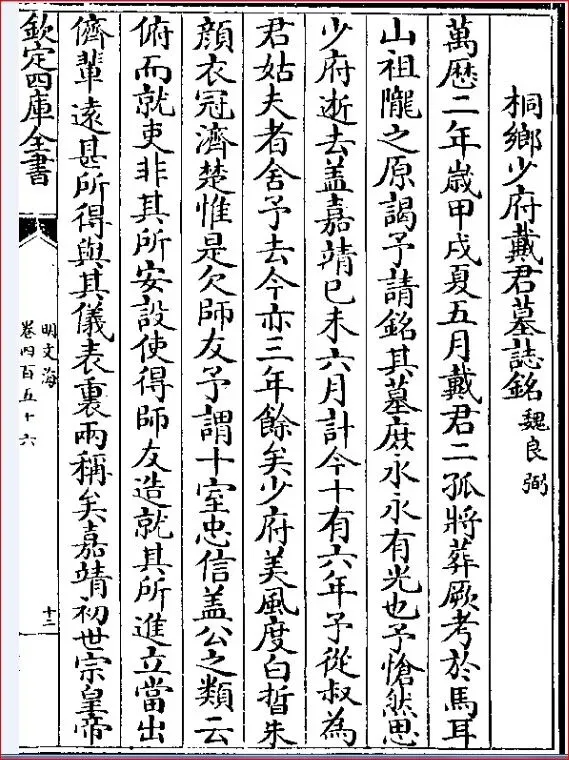 桐鄉少府戴君墓誌銘 魏良弼
萬歴二年嵗甲戌夏五月戴君二孤將葬厥考於馬耳
山祖隴之原謁予請銘其墓庶永永有光也予愴然思
少府逝去盖嘉靖已未六月計今十有六年予從叔為
君姑夫者舍予去今亦三年餘矣少府美風度白晳朱
顔衣冠濟楚惟是欠師友予謂十室忠信盖公之類云
俯而就吏非其所安設使得師友造就其所進立當出
儕輩遠甚所得與其儀表裏兩稱矣嘉靖初世宗皇帝
欽定四庫全書
明文海
卷四百五十六
十三